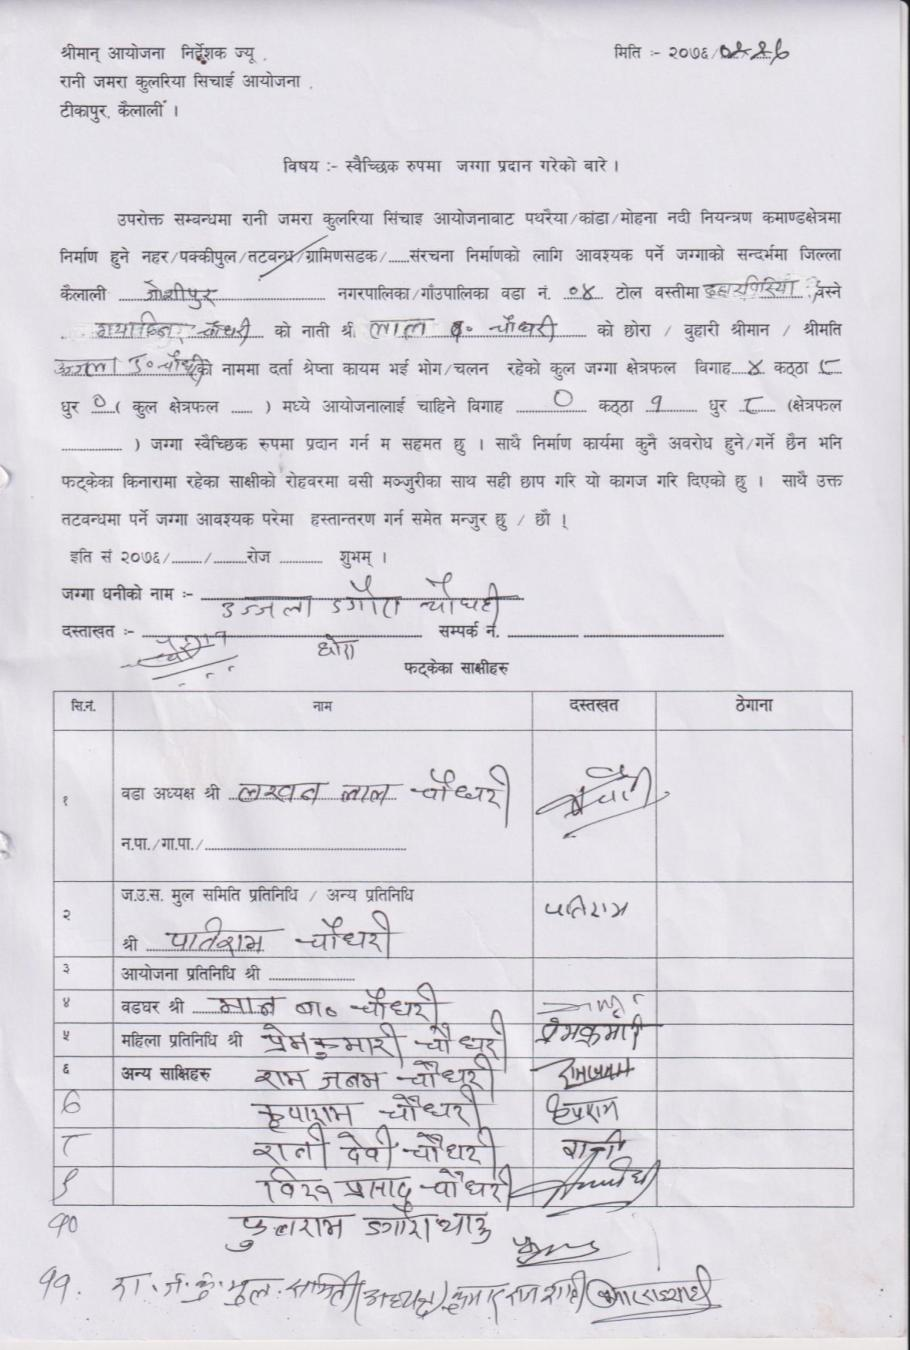 श्रीमान् आयोजना निर्देशक ज्यू , मिति :- २०७६/
रानी जमरा कुलरिया सिचाई आयोजना ,
टीकापुर, कैलाली ।
विषय :- स्वैच्छिक रुपमा जग्गा प्रदान गरेको बारे ।
उपरोक्त सम्बन्धमा रानी जमरा कुलरिया सिंचाइ आयोजनावाट पथरैया/कांडा/मोहना नदी नियन्त्रण कमाण्डक्षेत्रमा
निर्माण हुने नहर/पक्कीपुल/तटबन्ध/ग्रामिणसडक/......संरचना निर्माणको लागि आवश्यक पर्ने जग्गाको सन्दर्भमा जिल्ला
कैलाली जोशीपुर नगरपालिका/गाँउपालिका वडा नं. ०४ टोल वस्तीमा वस्ने
चौधरी को नाती श्री लाल ब० चौधरी को छोरा / बुहारी श्रीमान / श्रीमति
उज्जला ड० चौधरी को नाममा दर्ता श्रेष्ता कायम भई भोग/चलन रहेको कुल जग्गा क्षेत्रफल विगाह ४ कठ्ठा ८
धुर ० ( कुल क्षेत्रफल ...... ) मध्ये आयोजनालाई चाहिने विगाह ० कठ्ठा १ धुर ८ (क्षेत्रफल
................ ) जग्गा स्वैच्छिक रुपमा प्रदान गर्न म सहमत छु । साथै निर्माण कार्यमा कुनै अवरोध हुने/गर्ने छैन भनि
फट्केका किनारामा रहेका साक्षीको रोहवरमा वसी मञ्जुरीका साथ सही छाप गरि यो कागज गरि दिएको छु । साथै उक्त
तटवन्धमा पर्ने जग्गा आवश्यक परेमा हस्तान्तरण गर्न समेत मन्जुर छु / छौ ।
इति सं २०७६/......../.........रोज ........... शुभम् ।
जग्गा धनीको नाम :- उज्जला डगौरा चौधरी
दस्ताखत :- छोरा सम्पर्क नं. .................. ....................................
फट्केका साक्षीहरु
सि.नं. नाम दस्तखत ठेगाना
१ वडा अध्यक्ष श्री लखन लाल चौधरी
न.पा./गा.पा./..................................................
२ ज.उ.स. मुल समिति प्रतिनिधि / अन्य प्रतिनिधि
श्री पातिराम चौधरी पतिराम
३ आयोजना प्रतिनिधि श्री .....................
४ वडघर श्री मान ब० चौधरी
५ महिला प्रतिनिधि श्री प्रेमकुमारी चौधरी प्रेमकुमारी
६ अन्य साक्षिहरु राम जनम चौधरी रामजनम
७ कृपाराम चौधरी कृपाराम
८ रानी देवी चौधरी रानी
९ प्रसाद चौधरी
१० फुलराम डगौरा थारु
११. रा.ज.कु. मुल. समिती (अध्यक्ष)